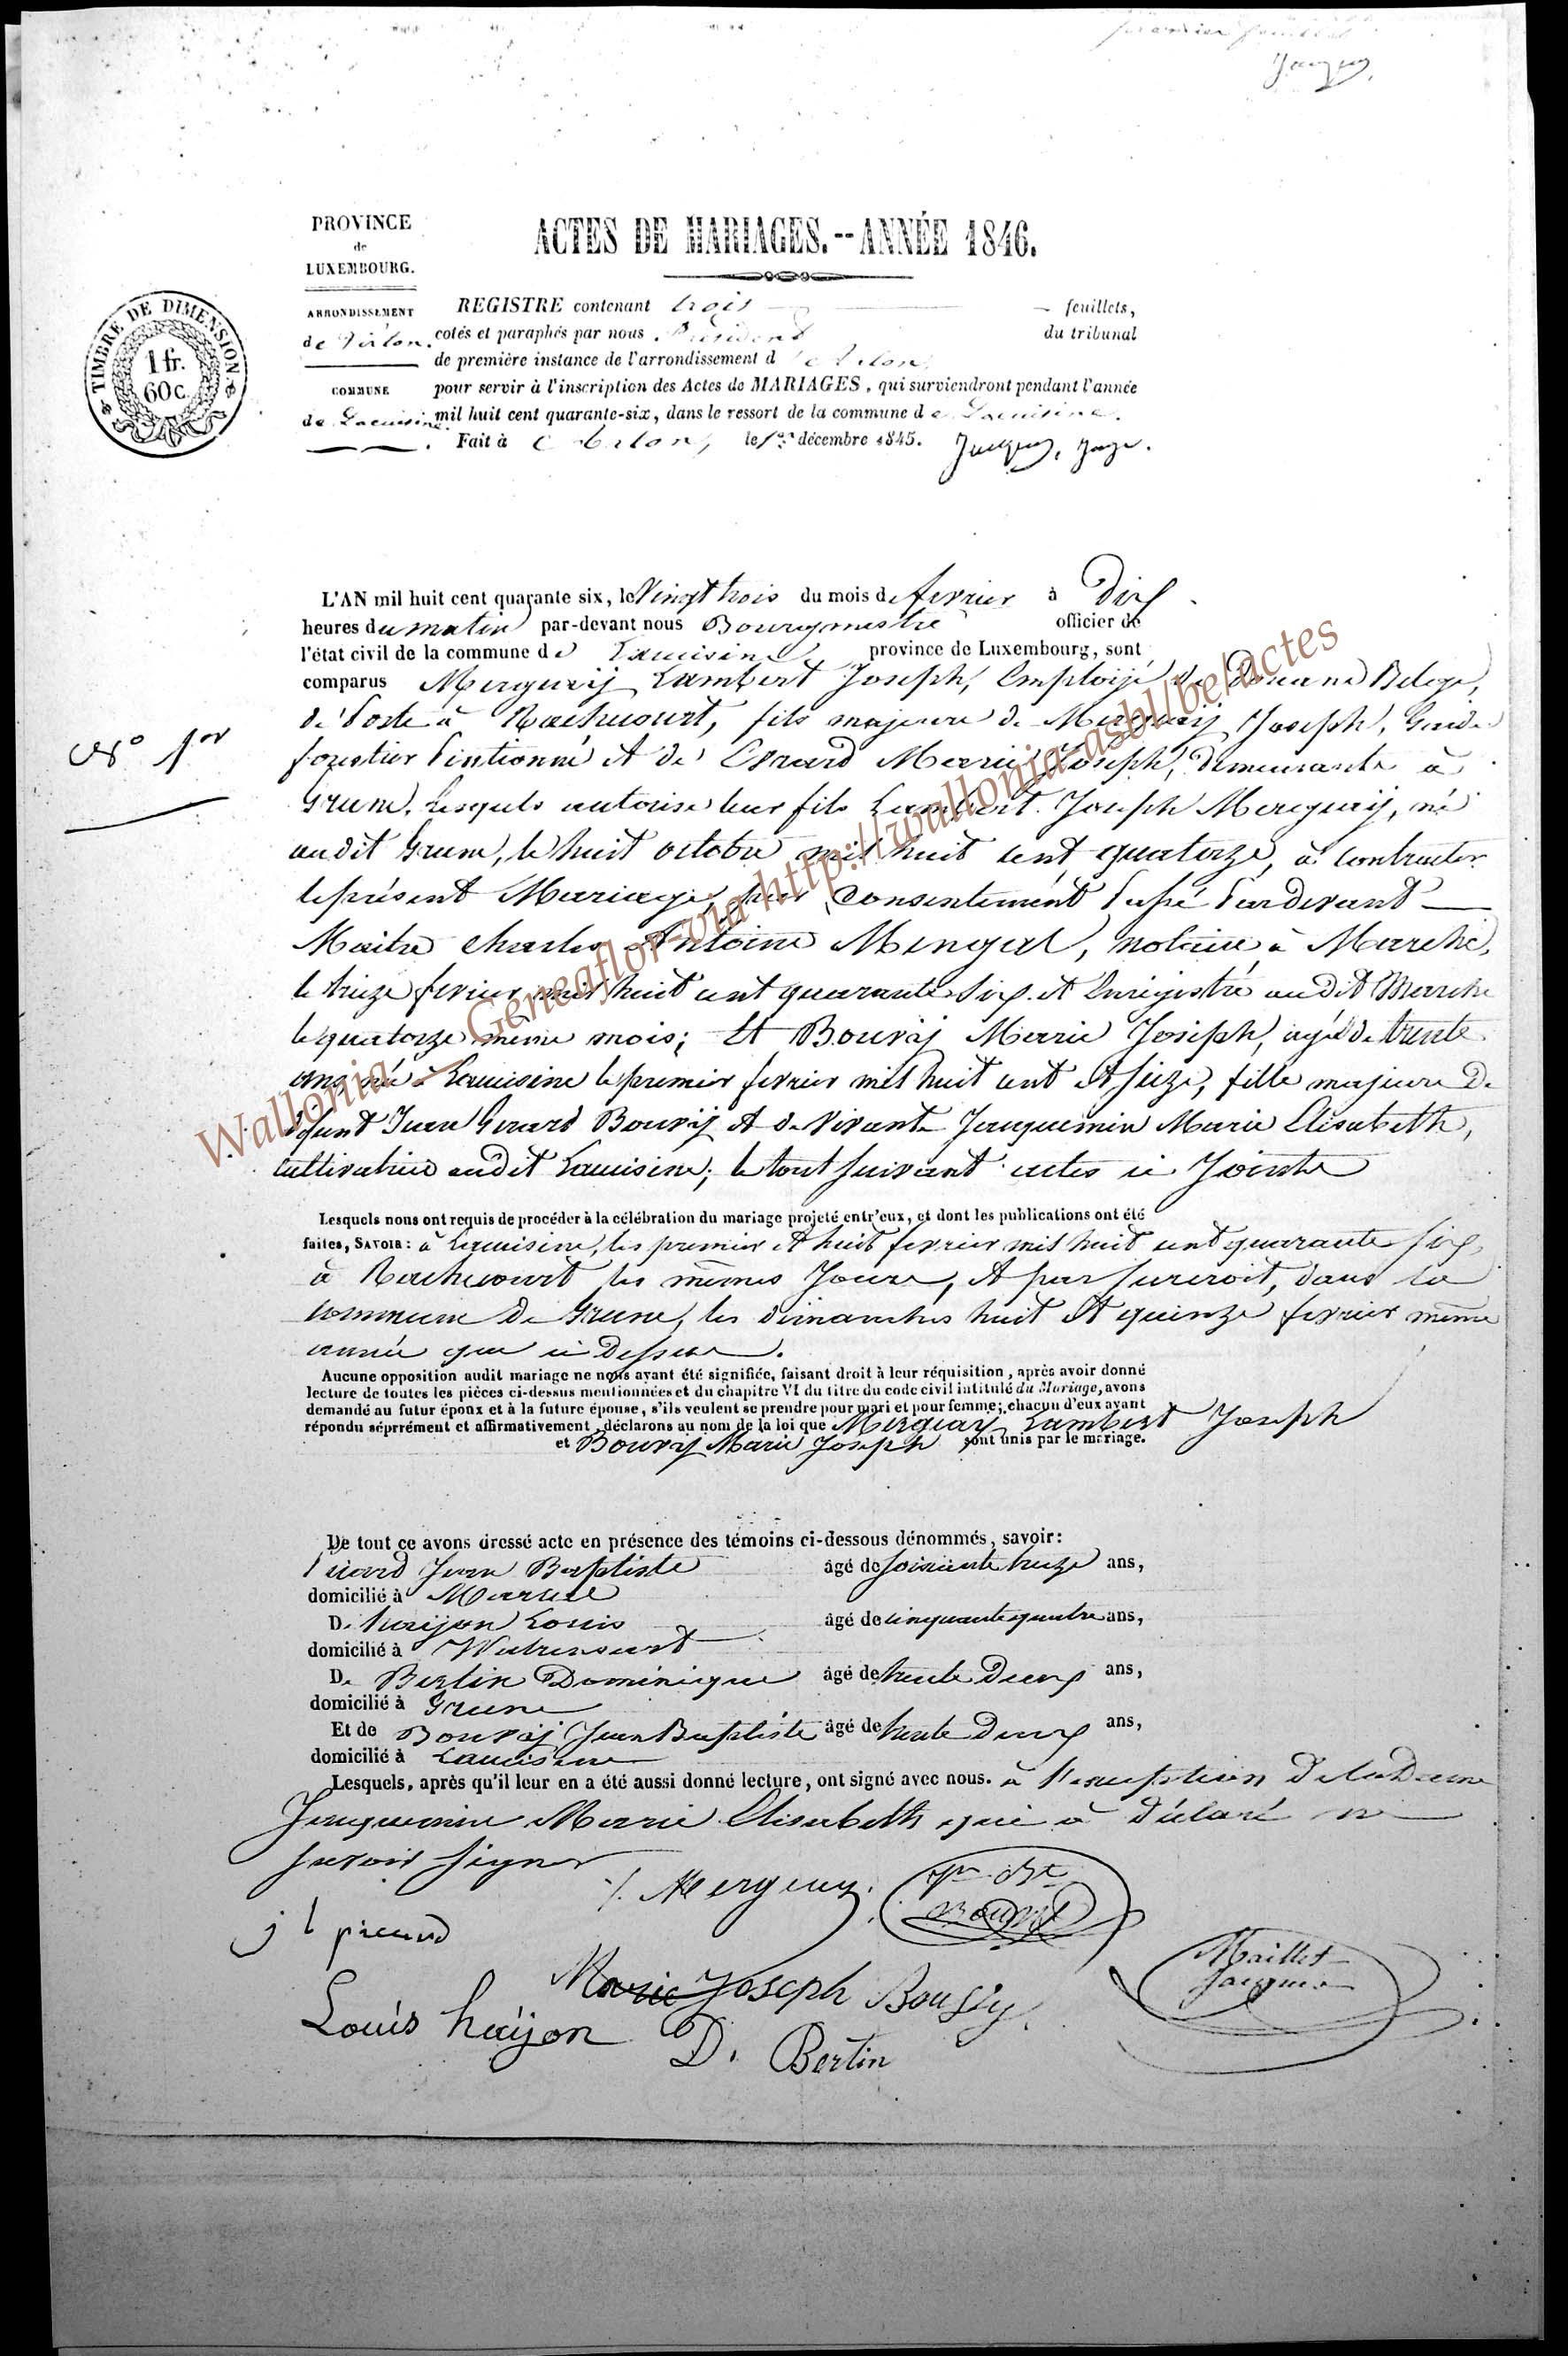 Jacques
PROVINCE
de
LUXEMBOURG.
ARRONDISSEMENT
de Virton.
COMMUNE
de Lacuisine.
TIMBRE DE DIMENSION
1 fr.
60 c.
ACTES DE MARIAGES.--ANNÉE 1846.
REGISTRE contenant trois feuillets,
cotés et paraphés par nous Président du tribunal
de première instance de l'arrondissement d'Arlon,
pour servir à l'inscription des Actes de MARIAGES, qui surviendront pendant l'année
mil huit cent quarante-six, dans le ressort de la commune de Lacuisine.
Fait à Arlon, le 1er décembre 1845. Jacques, Juge.
L'AN mil huit cent quarante six, le Vingt trois du mois de fevrier à Dix
heures du matin par-devant nous Bourgmestre officier de
l'état civil de la commune de Lacuisine province de Luxembourg, sont
comparus Merguaÿ Lambert Joseph, Employé de Douane Belge,
de Poste à Rachecourt, fils majeure de Merguaÿ Joseph, Garde
N° 1er
forestier Pentionné et de Evrard Marie Joseph, demeurante à
Grune, lesquels autorise leur fils Lambert Joseph Merguaÿ, né
audit Grune, le huit octobre mil huit cent quatorze, à contracter
le présent Mariage, par consentement passé Pardevant
Maitre Charles Antoine Mengal, notaire à Marche,
le treize fevrier mil huit cent quarante six et Enregistré audit Marche
le quatorze même mois; et Bouvÿ Marie Joseph, agée de trente
ans née à Lacuisine le premier fevrier mil huit cent et seize, fille majeure De
défunt Jean Gerard Bouvÿ et de vivante Jacquemin Marie Elisabeth,
cultivatrice audit Lacuisine; le tout suivant actes ci Jointe
Lesquels nous ont requis de procéder à la célébration du mariage projeté entr'eux, et dont les publications ont été
faites, SAVOIR: à Lacuisine, les premier et huit fevrier mil huit cent quarante six,
à Rachecourt les mêmes Jours, et par surcroit, dans la
commune De Grune, les dimanches huit et quinze fevrier même
année que ci Dessus.
Aucune opposition audit mariage ne nous ayant été signifiée, faisant droit à leur réquisition, après avoir donné
lecture de toutes les pièces ci-dessus mentionnées et du chapitre VI du titre du code civil intitulé du Mariage, avons
demandé au futur époux et à la future épouse, s'ils veulent se prendre pour mari et pour femme; chacun d'eux ayant
répondu séprrément et affirmativement, déclarons au nom de la loi que Merguaÿ Lambert Joseph
et Bouvÿ Marie Joseph sont unis par le mariage.
De tout ce avons dressé acte en présence des témoins ci-dessous dénommés, savoir:
Jean Baptiste âgé de soixante treize ans,
domicilié à
De haijon Louis âgé de cinquante quatre ans,
domicilié à
De Bertin Dominique âgé de trente Deux ans,
domicilié à Grune
Et de Bouvÿ Jean Baptiste âgé de trente Deux ans,
domicilié à Lacuisine
Lesquels, après qu'il leur en a été aussi donné lecture, ont signé avec nous. à l'exception De la Dame
Jacquemin Marie Elisabeth qui à déclaré ne
savoir signer
Merguay. Jn Bte
Bouvy
Marie Joseph Bouvy
Maillet
Jacques
Louis haÿon D. Bertin
Wallonia - Geneaflor-via http://wallonia-asbl/be/actes